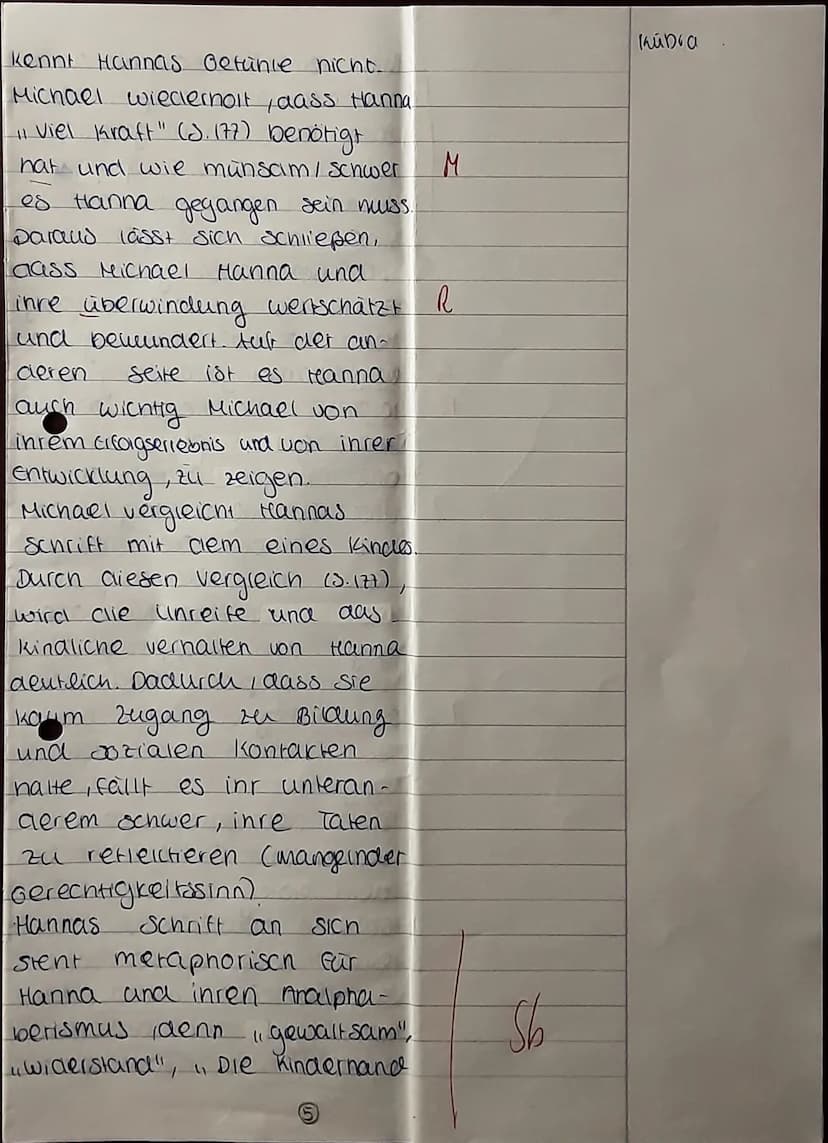 Kübra
kennt Hannas Gefühle nicht.
Michael wiederholt, dass Hanna
„viel Kraft" (S.177) benötigt
hat und wie mühsam/schwer
M
es Hanna gegangen sein muss.
Daraus lässt sich schließen,
dass Michael Hanna und
ihre überwindung wertschätzt
R
und bewundert. Auf der an-
deren Seite ist es Hanna
auch wichtig Michael von
ihrem Erfolgserlebnis und von ihrer
Entwicklung, zu zeigen.
Michael vergleicht Hannas
Schrift mit dem eines Kindes.
Durch diesen Vergleich (S.177),
wird die Unreife und das
kindliche verhalten von Hanna
deutlich. Dadurch, dass sie
kaum Zugang zu Bildung
und sozialen Kontakten
hatte, fällt es ihr unteran-
derem schwer, ihre Taten
zu reflektieren (mangelnder
Gerechtigkeitssinn).
Hannas Schrift an sich
steht metaphorisch für
Hanna und ihren Analpha-
betismus, denn „gewaltsam",
Sb
„widerstand", „Die Kinderhand
5